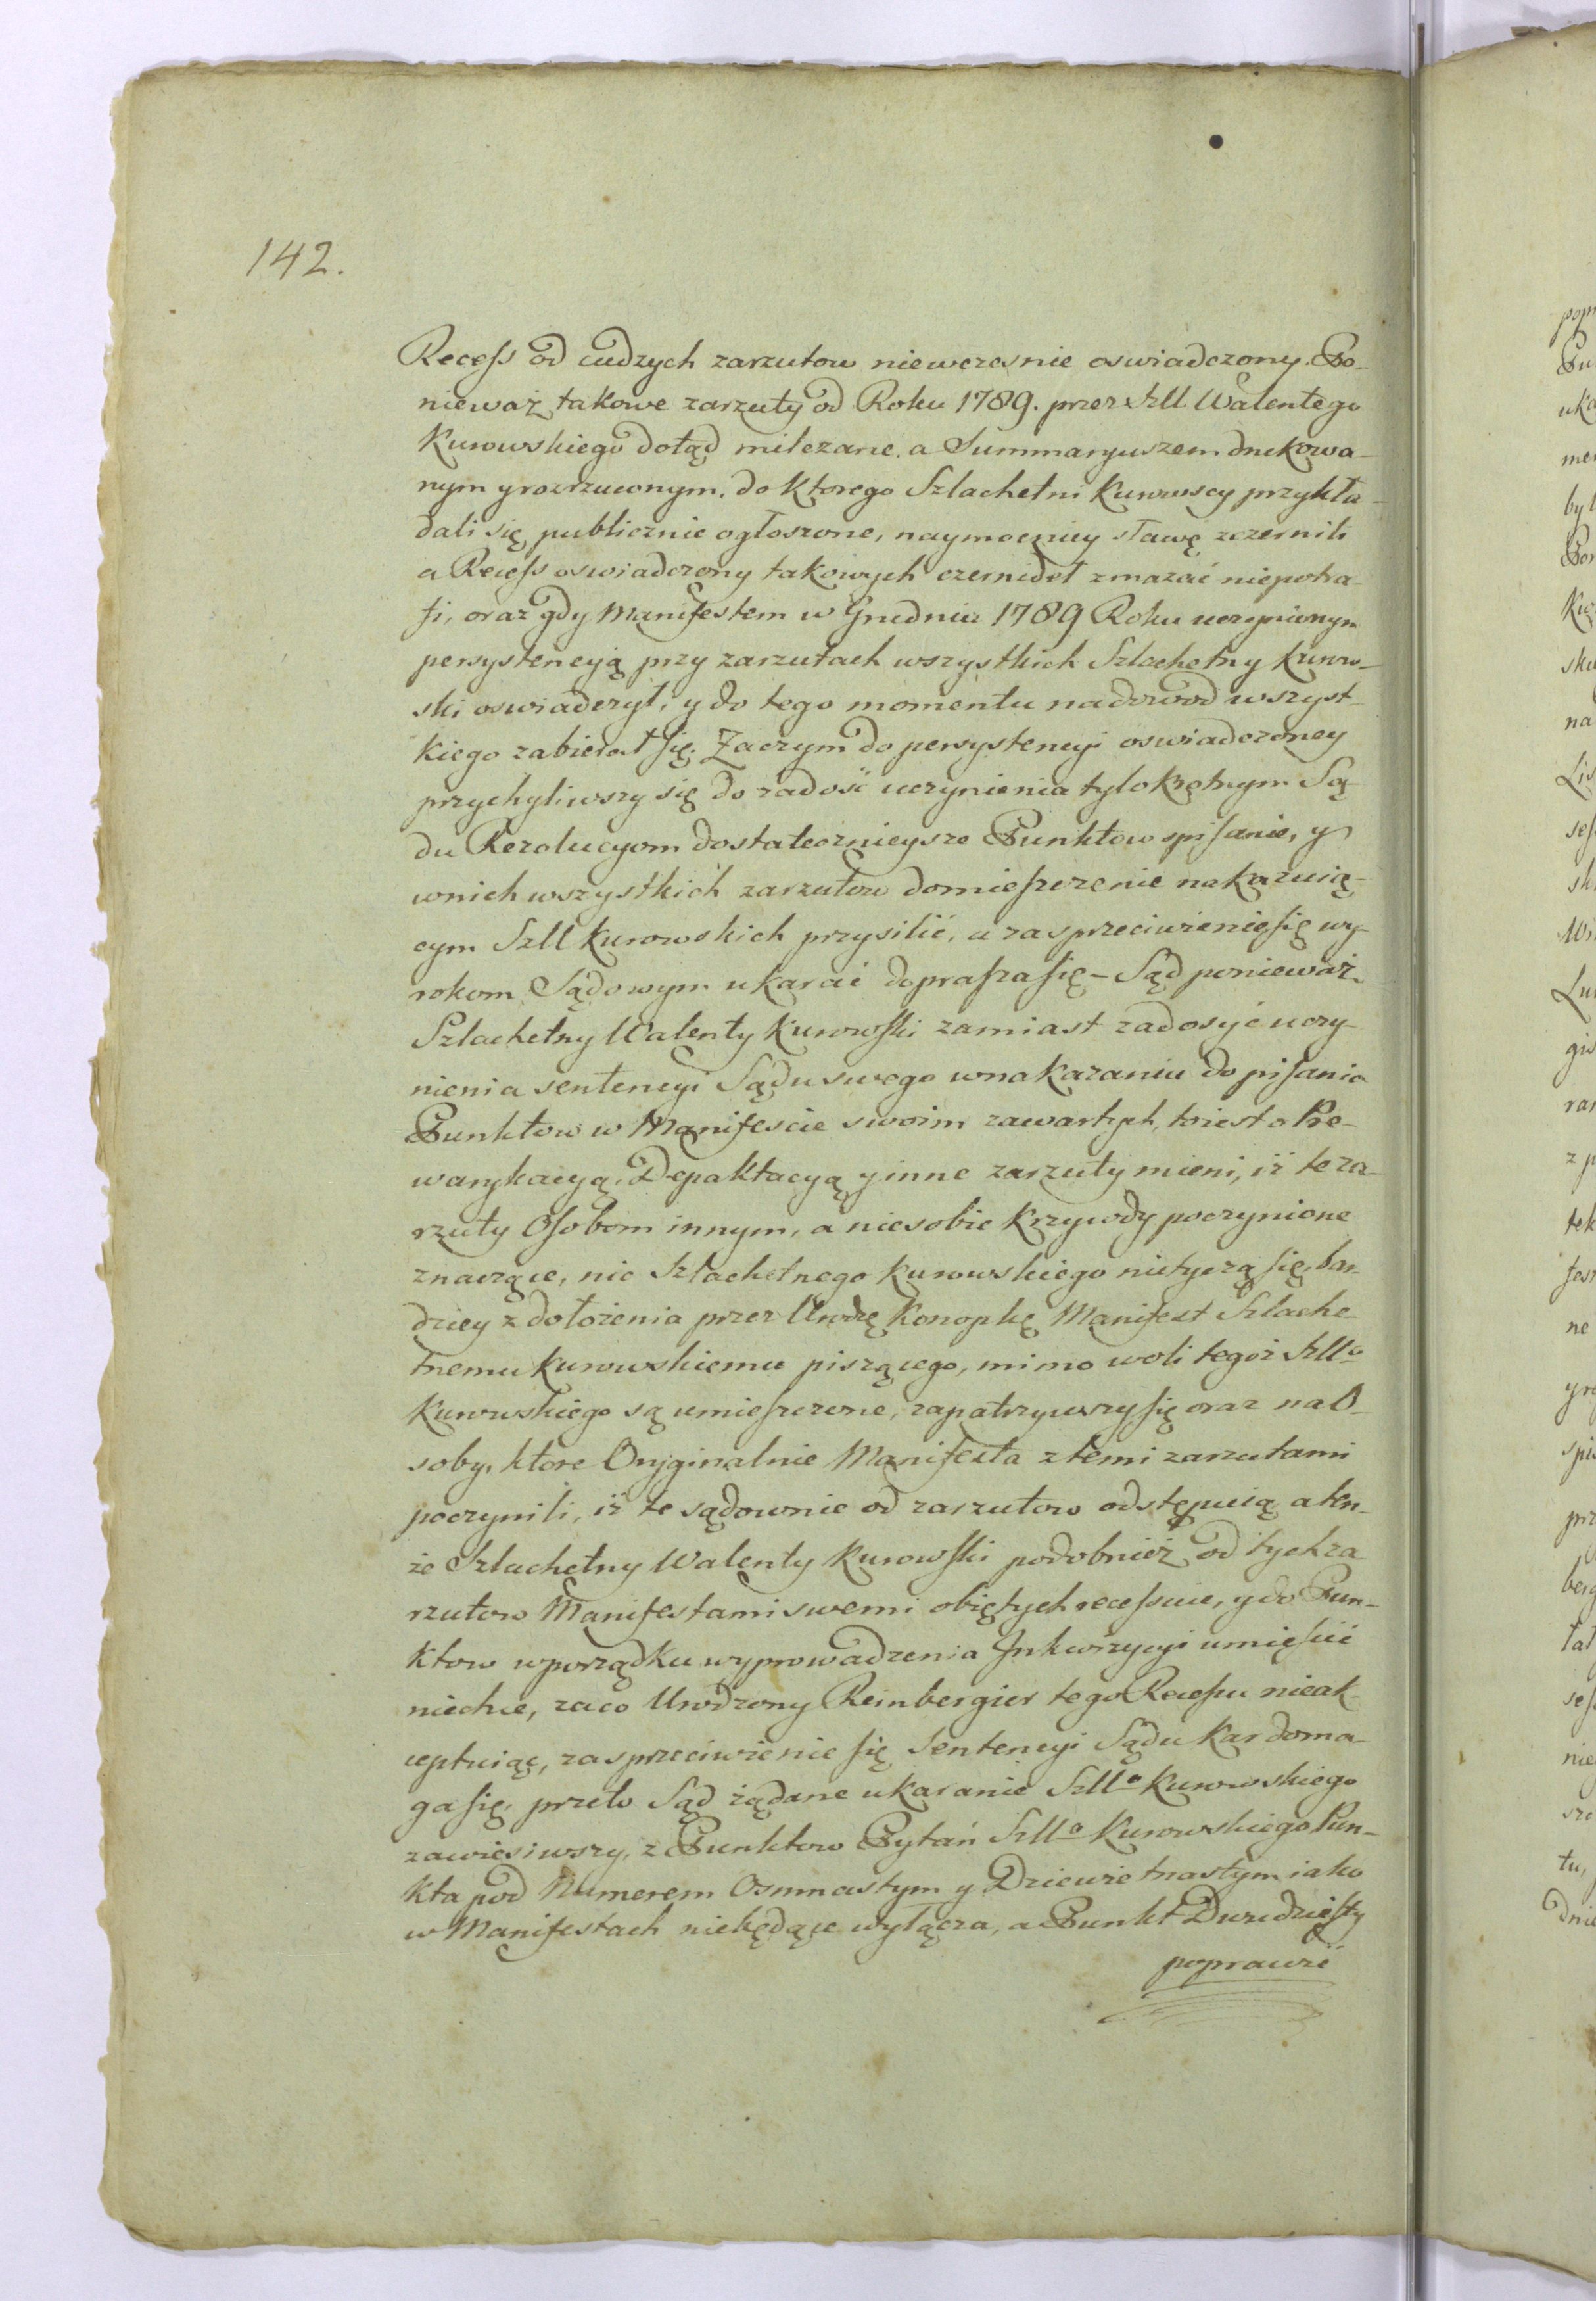 142.
Recess od cudzych zarzutow niewczesnie oswiadczony. Po-
nieważ takowe zarzuty od Roku 1789. przez Szll. Walentego
Kurowskiego dotąd milczane. a Summaryuszem drukowa-
nym y rozrzuconym, do ktorego Szlachetni Kurowscy przykła-
dali się, publicznie ogłoszone, naymocniey sławę zczernili
a Recess oswiadczony takowych czernideł zmazać niepotra-
fi, oraz gdy Manifestem w Grudniu 1789 Roku uczynionym
persystencyią przy zarzutach wszystkich Szlachetny Kurow-
ski oswiadczył, y do tego momentu nadowod wszyst-
kiego zabierał się. Zaczym do persystencyi oswiadczoney
przychyliwszy się do zadość uczynienia tylokrotnym Są-
du Rezolucyom dostatecznieysze Punktow spisanie, y
wnich wszystkich zarzutow domieszczenie nakazuią-
cym Szll Kurowskich przysilić, a zasprzeciwienie się wy-
rokom Sądowym ukarać dopraszasię – Sąd ponieważ
Szlachetny Walenty Kurowski zamiast zadosyć uczy-
nienia sentencyi Sądu swego wnakazaniu do pisania
Punktow w Manifescie swoim zawartych, toiest o Pre-
warykacyą, Depaktacyą y inne zarzuty mieni, iż teza-
rzuty Osobom innym, a niesobie krzywdy poczynione
znaczące, nic Szlachetnego Kurowskiego nietyczą się, bar-
dziey z dołożenia przez Urodzę Konopkę Manifest Szlache
tnemu Kurowskiemu piszącego, mimo woli tegoż Szllo
Kurowskiego są umieszczone, zapatrzywszy się oraz na O-
soby, ktore Oryginalnie Manifesta z temi zarzutami
poczynili, iż te sądownie od zarzutow odstępuią a ten-
że Szlachetny Walenty Kurowski podobnież od tych za
rzutow Manifestami swemi obiętych recessuie, y do Pun-
ktow wporządku wyprowadzenia Inkwizycyi umieścić
niechce, zaco Urodzony Reinbergier tego Recessu nieak-
ceptuiąc, zasprzeciwienie się Sentencyi Sądu kar doma-
ga się, przeto Sąd żądane ukaranie Szllo Kurowskiego
zawiesiwszy, z Punktow Pytań Szllo Kurowskiego Pun-
kta pod Numerem Osmnastym y Dziewietnastym iako
w Manifestach niebędące wyłącza, a Punkt Dwudziesty
poprawić